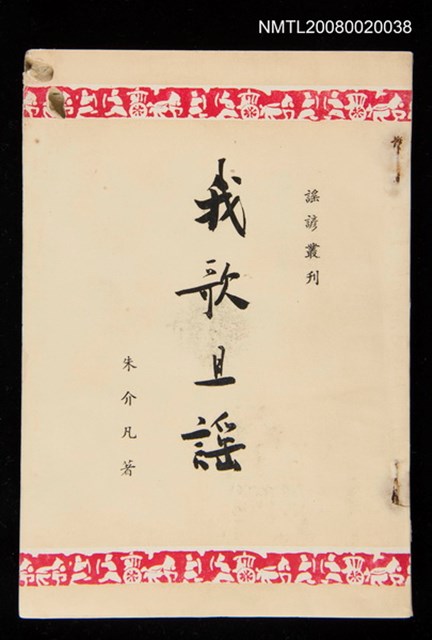 NMTL20080020038
謠諺叢刊
我歌且謠
朱介凡著